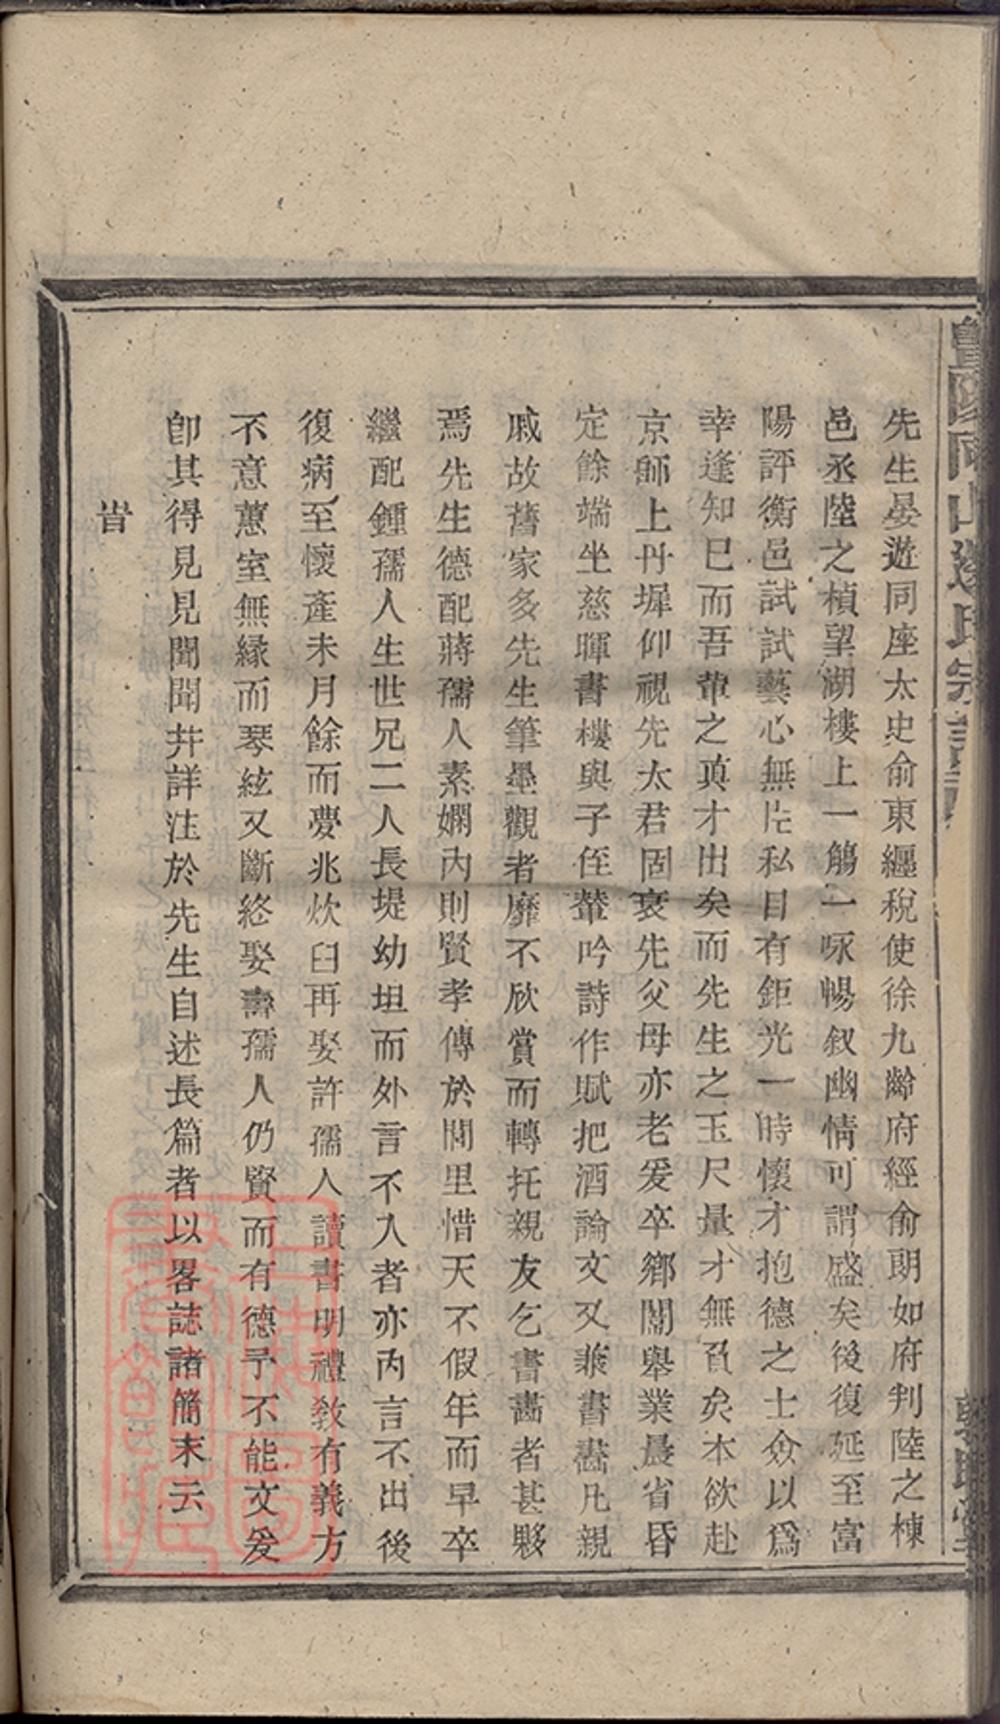 先生晏遊同座太史俞東纒稅使徐九齡府經俞朗如府判陸之棟
邑丞陸之楨望湖樓上一觴一咏暢叙幽情可謂盛矣後復延至富
陽評衡邑試試藝心無片私目有鉅光一時懷才抱德之士僉以爲
幸逢知己而吾輩之眞才出矣而先生之玉尺量才無負矣本欲赴
京師上丹墀仰視先太君固衰先父母亦老爰卒鄉闈舉業晨省昏
定餘端坐慈暉書樓與子侄輩吟詩作賦把酒論文又兼書畵凡親
戚故舊家多先生筆墨觀者靡不欣賞而轉托親友乞書畵者甚夥
焉先生德配蔣孺人素嫻內則賢孝傳於閭里惜天不假年而早卒
繼配鍾孺人生世兄二人長堤幼坦而外言不入者亦內言不出後
復病至懷產未月餘而夢兆炊臼再娶許孺人讀書明禮敎有義方
不意蕙室無緣而琴絃又斷終娶壽孺人仍賢而有德予不能文爰
卽其得見見聞聞幷詳注於先生自述長篇者以畧誌諸簡末云
旹